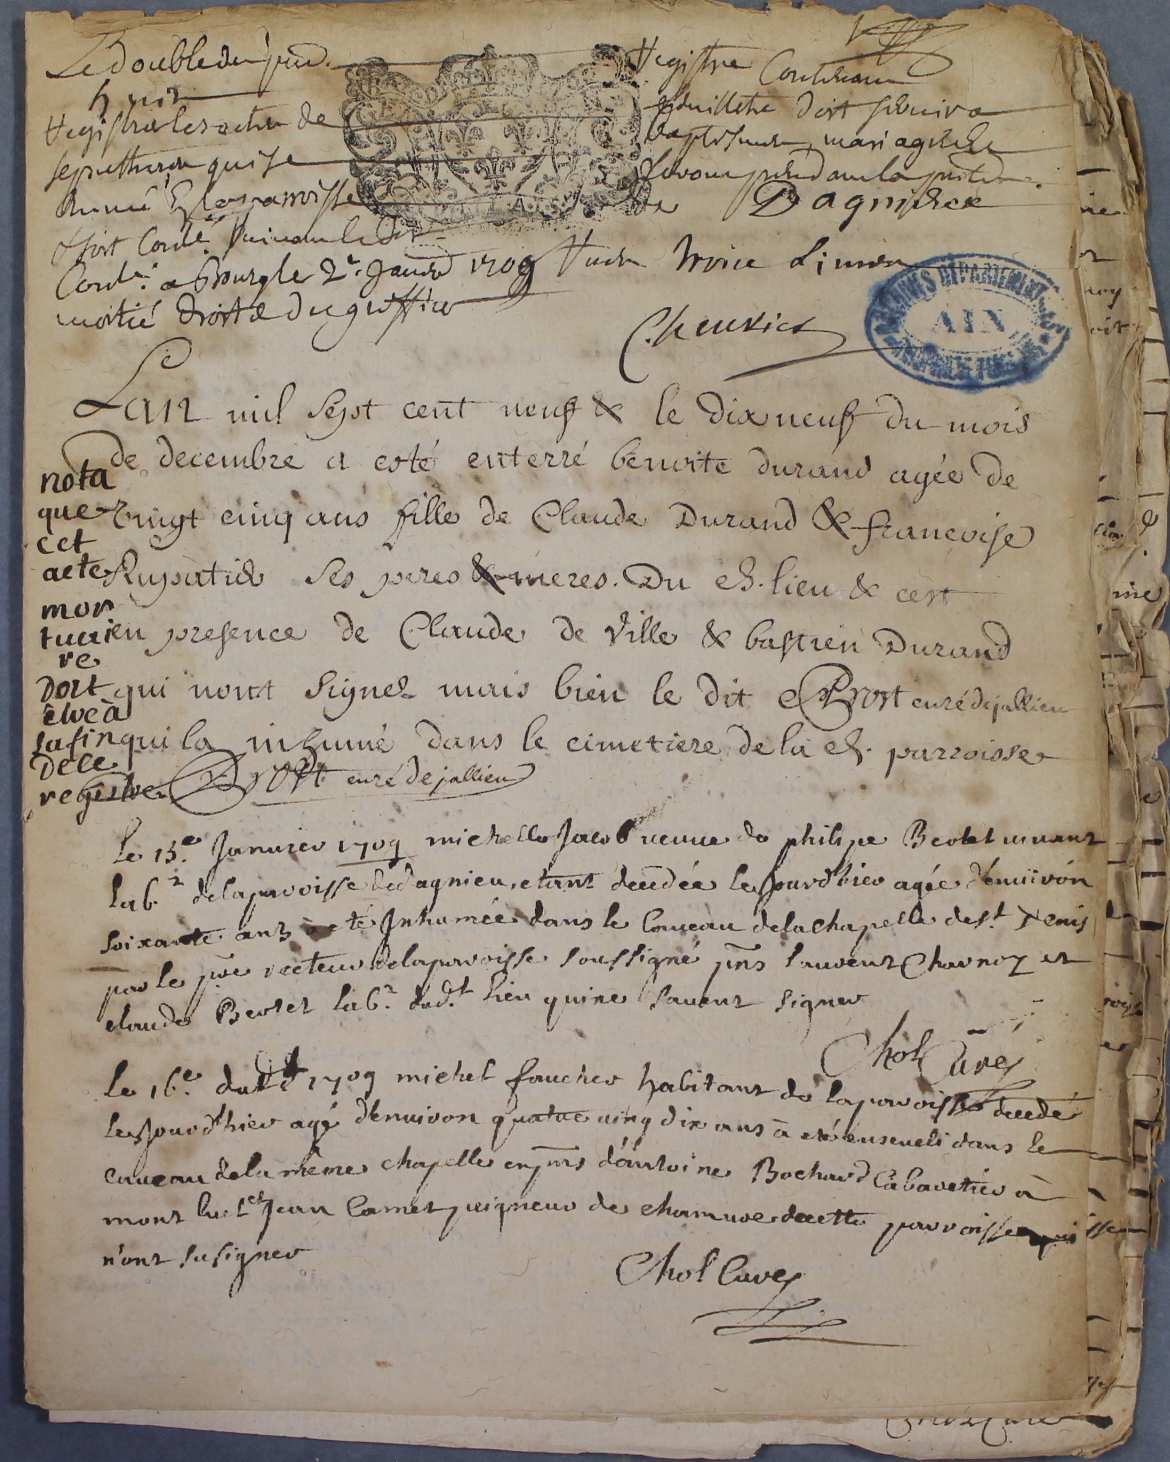 Le double du pnt. Registre Contenant
huit feuillets doit servir a
Registrer les actes de baptesmes, mariages et
sepultures qui se feront pendant la pnte
Année En la parroisse de Dagnieu
Cont. a Bourg le 2e Janvr 1709
moitié droits du greffier
Chevrier
ARCHIVES DEPARTEMENTALES
AIN
Lan mil sept cent neuf & le dix neuf du mois
de decembre a esté enterré benoite durand agée de
vingt cinq ans fille de Claude Durand & francoise
ses peres & meres. Du d. lieu & cest
en presence de Claude de Ville & bastien Durand
qui nont signez mais bien le dit Prost curé de jallieu
qui la inhumé dans le cimetiere de la d. parroisse
Prost curé de jallieu
nota
que
cet
acte
mor
tuai
re
doit
etre à
la fin
de ce
registre
Le 15e Janvier 1709 michelle Jacob veuve de philipe Berlet vivant
lab.r de la parroisse de dagnieu, etant decedée le jourd'hier agée d'enuirón
soixante ans a eté Inhumée dans le Caueau de la chapelle de st. Denis
par le pnt recteur de la parroisse soussigné pnts laurent Charnoz et
claude Berlet lab.r dud.t lieu qui ne sauent signer
Chol Curé
Le 16e dudt 1709 michel faucher habitant de la parroisse decedé
le jourd'hier agé d'enuiron quatre uingt dix ans à eté enseueli dans le
caueau de la même chapelle en pnts d'antoine Bochard Cabaretier à
mont luel et Jean Camet peigneur de chanure de cette parroisse qui
n'ont su signer
Chol Curé